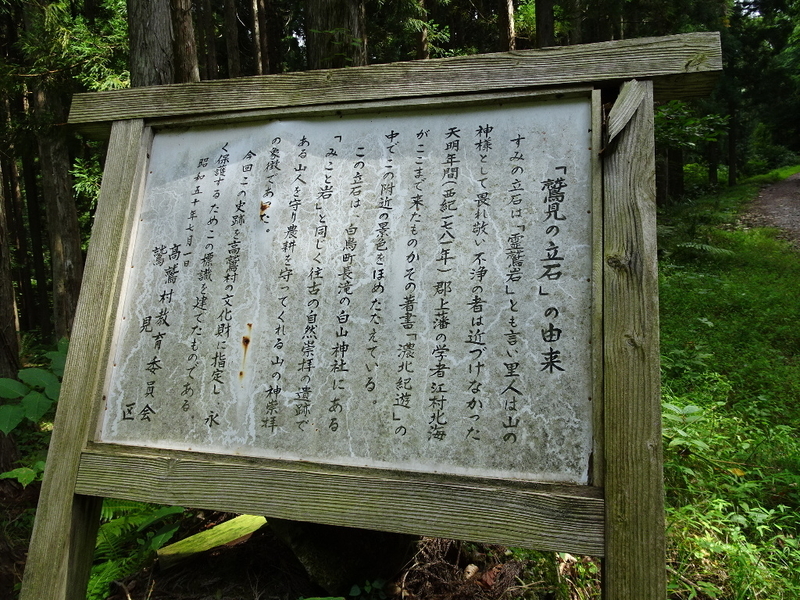 「鷲見の立石」の由来
すみの立石は「霊鷲岩」とも言い里人は山の
神様として畏れ敬い不浄の者は近づけなかった
天明年間(西紀一七八一年)郡上藩の学者江村北海
がここまで来たものかその著書「濃北紀遊」の
中でこの附近の景色をほめたたえている
この立石は、白鳥町長滝の白山神社にある
「みこと岩」と同じく往古の自然崇拝の遺跡で
ある山人を守り農耕を守ってくれる山の神崇拝
の象徴であった。
今回この史跡を高鷲村の文化財に指定し永
く保護するためこの標識を建てたものである
昭和五十年七月一日
高鷲村教育委員会
鷲見区